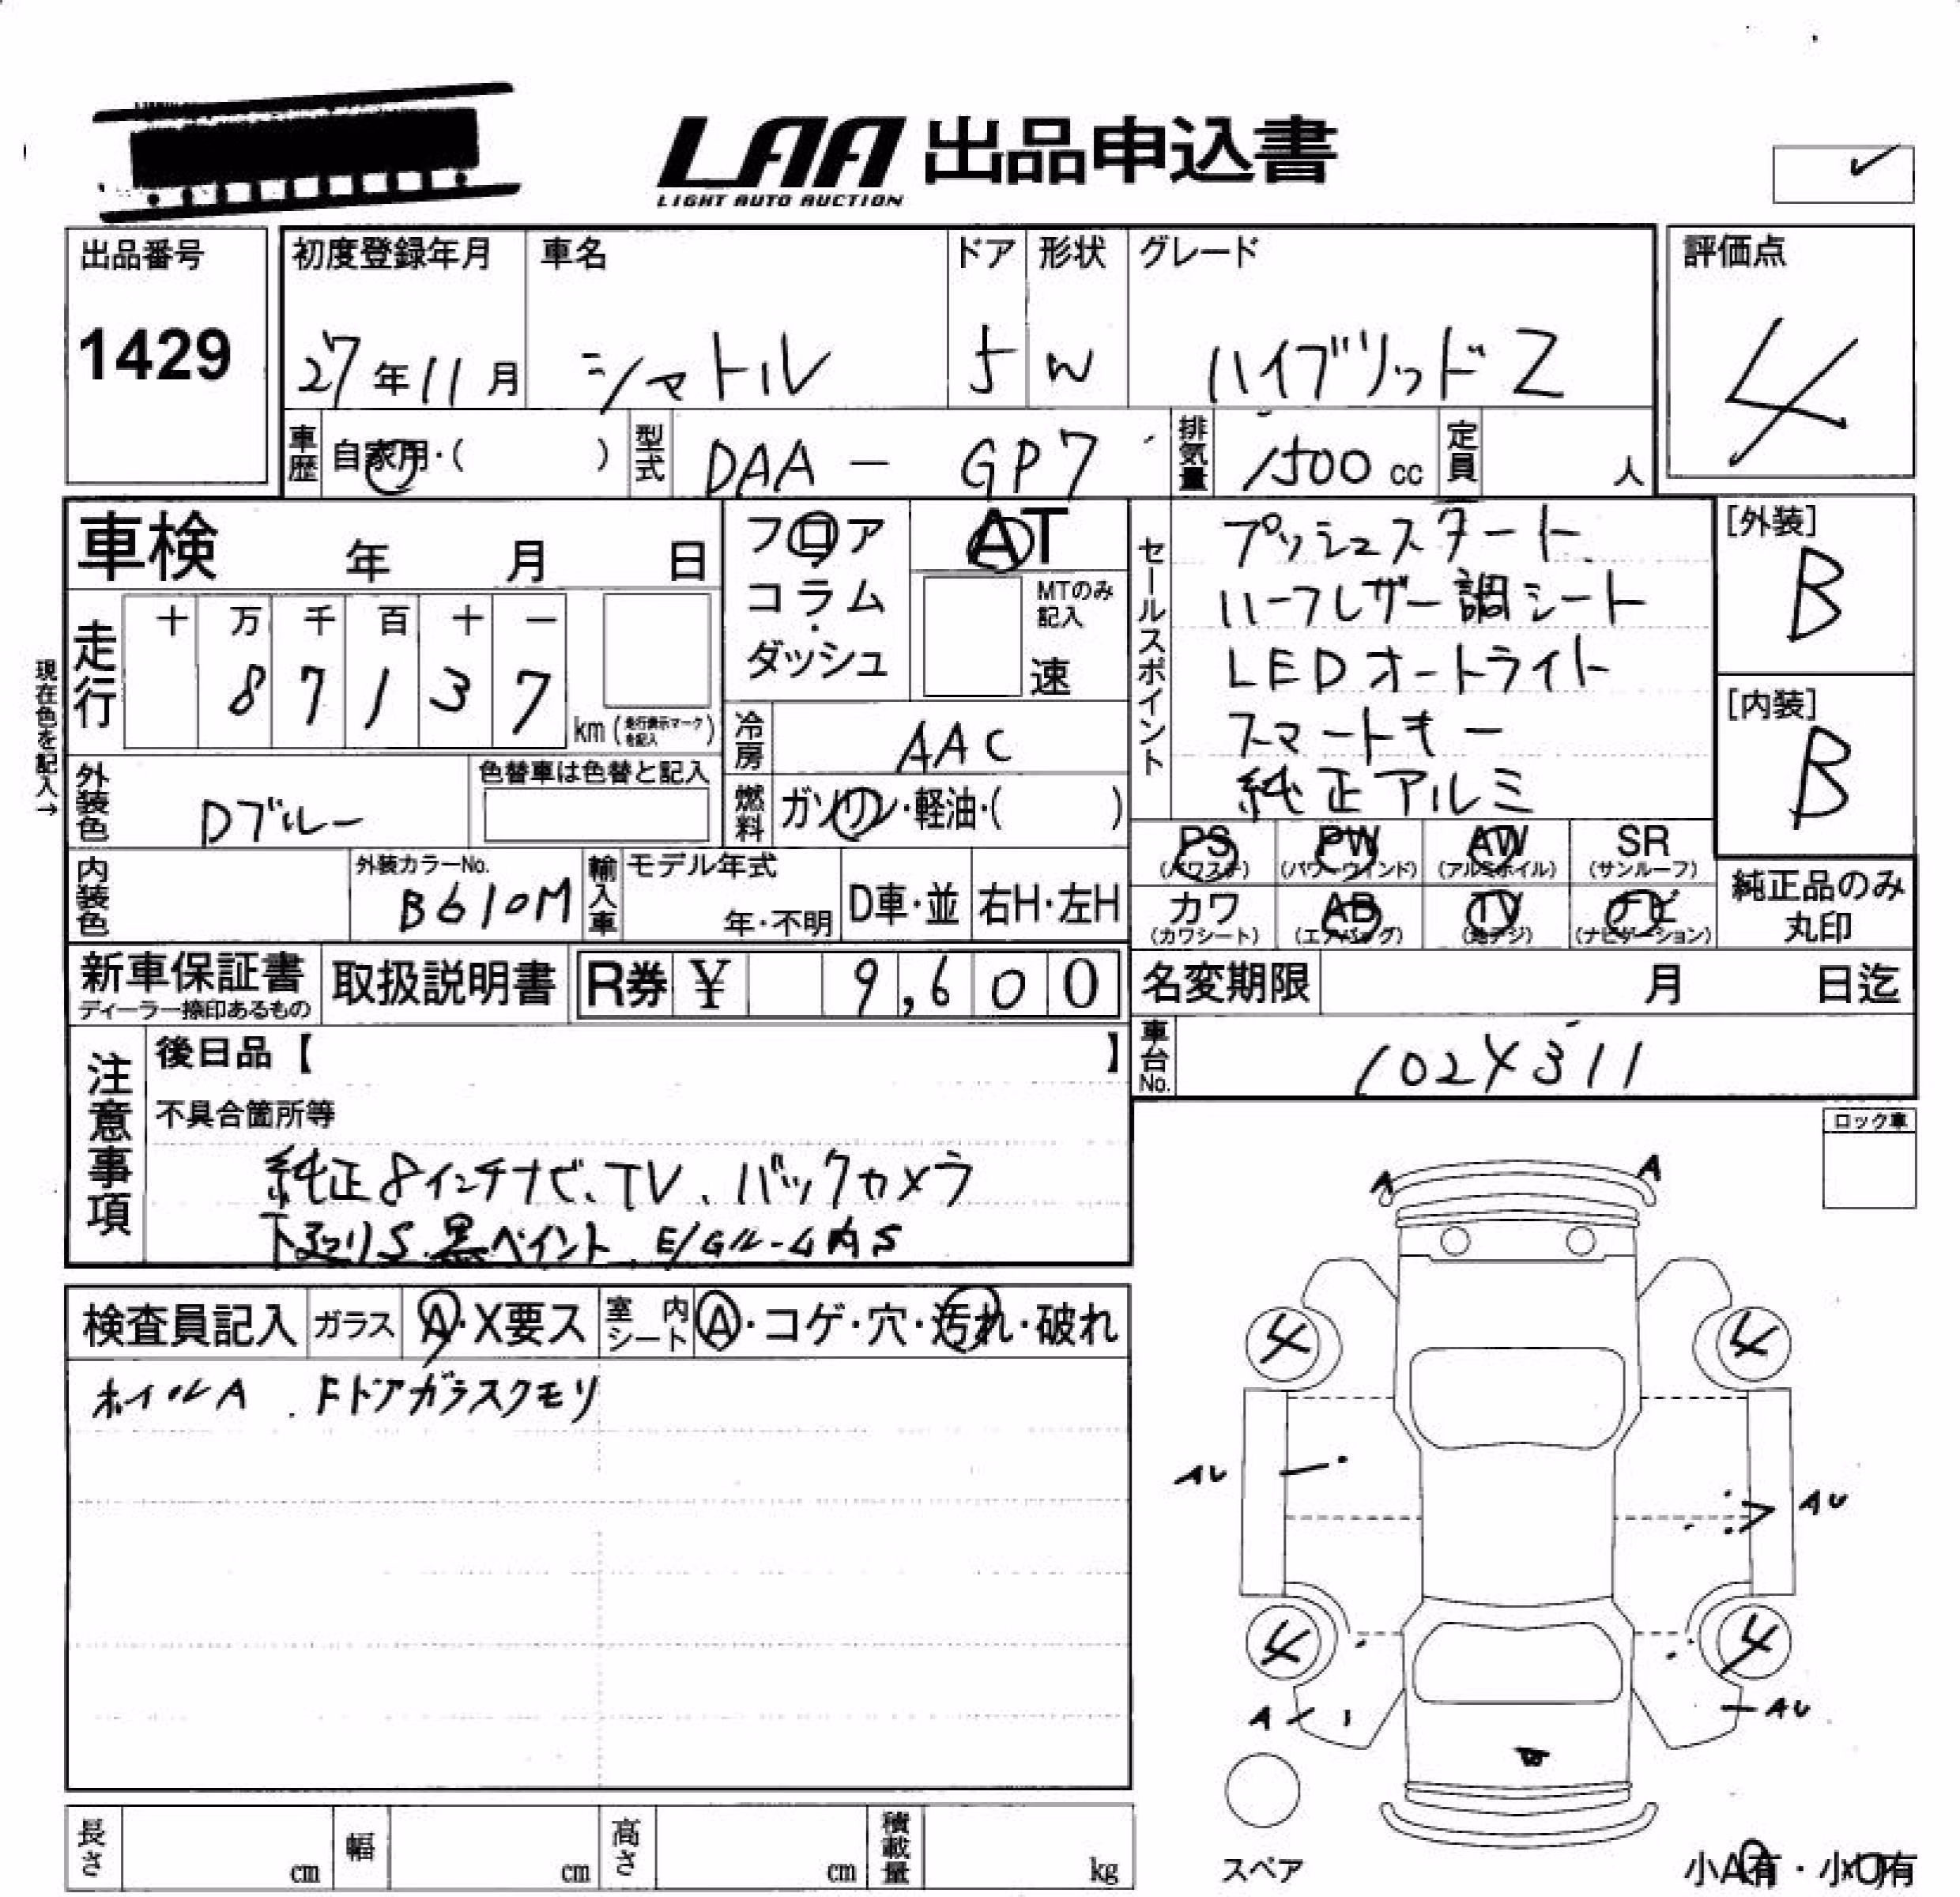 LAA 出品申込書
LIGHT AUTO AUCTION
出品番号
1429
初度登録年月
27年11月
車名
シャトル
ドア
5
形状
W
グレード
ハイブリッド Z
評価点
4
車歴 自家用・( )
型式 DAA - GP7
排気量 1500 cc
定員 人
車検 年 月 日
フロア
コラム
・
ダッシュ
AT
MTのみ
記入
速
セールスポイント
プッシュスタート
ハーフレザー調シート
LEDオートライト
スマートキー
純正アルミ
[外装]
B
[内装]
B
現在色を記入→
走行
十 万 千 百 十 一
8 7 1 3 7
km (走行表示マークを記入)
冷房 AAC
外装色 Dブルー
色替車は色替と記入
燃料 ガソリン・軽油・( )
内装色
外装カラーNo.
B610M
輸入車
モデル年式
年・不明
D車・並
右H・左H
PS
(パワステ)
PW
(パワーウィンド)
AW
(アルミホイル)
SR
(サンルーフ)
カワ
(カワシート)
AB
(エアバッグ)
TV
(地デジ)
ナビ
(ナビゲーション)
純正品のみ
丸印
新車保証書
ディーラー捺印あるもの
取扱説明書
R券 ¥ 9,600
名変期限 月 日迄
車台No. 1024311
注意事項
後日品【 】
不具合箇所等
純正8インチナビ、TV、バックカメラ
下廻りS 黒ペイント、E/Gルーム内S
ロック車
検査員記入
ガラス A・X要ス
室内シート A・コゲ・穴・汚れ・破れ
ホイルA . FドアガラスクモリA A
4 4
AU
AU
4 4
A
AU
スペア
小A有・小U有
長さ cm
幅 cm
高さ cm
積載量 kg